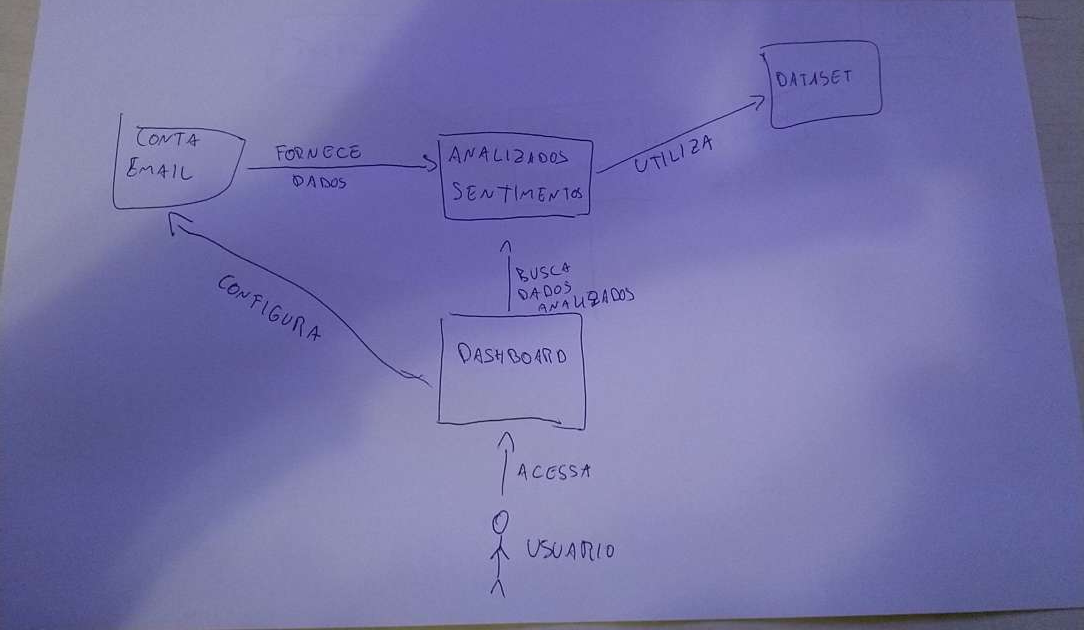 DATASET
CONTA
EMAIL
FORNECE
DADOS
ANALIZADOS
SENTIMENTOS
UTILIZA
CONFIGURA
BUSCA
DADOS
ANALIZADOS
DASHBOARD
ACESSA
USUARIO